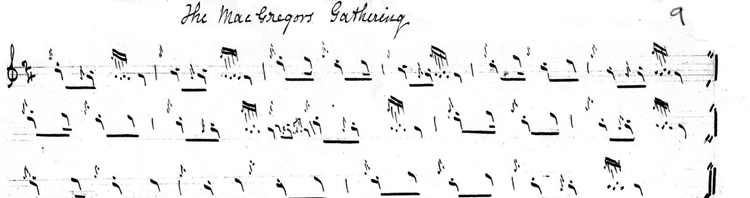 The MacGregors Gathering 9